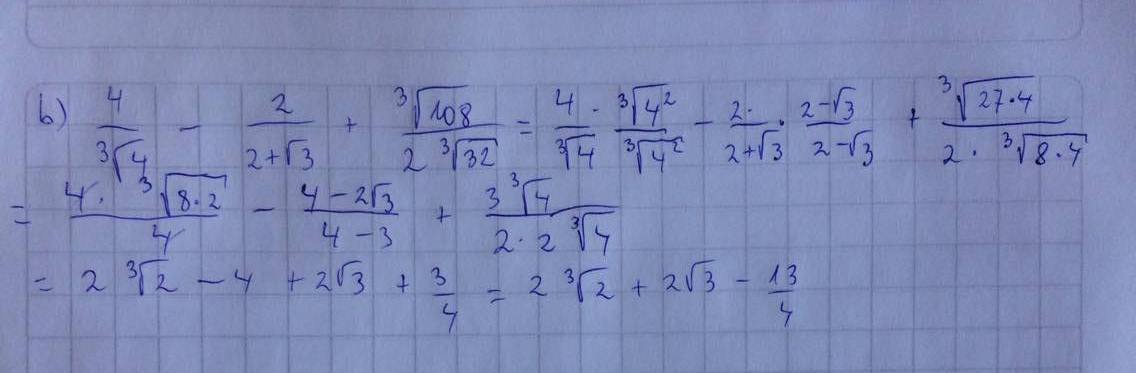 b) 4/∛4 − 2/(2+√3) + ∛108/(2∛32) = 4/∛4 · ∛4²/∛4² − 2·/(2+√3) · (2−√3)/(2−√3) + ∛(27·4)/(2·∛(8·4))
= 4·∛(8·2)/4 − (4−2√3)/(4−3) + 3∛4/(2·2∛4)
= 2∛2 − 4 + 2√3 + 3/4 = 2∛2 + 2√3 − 13/4